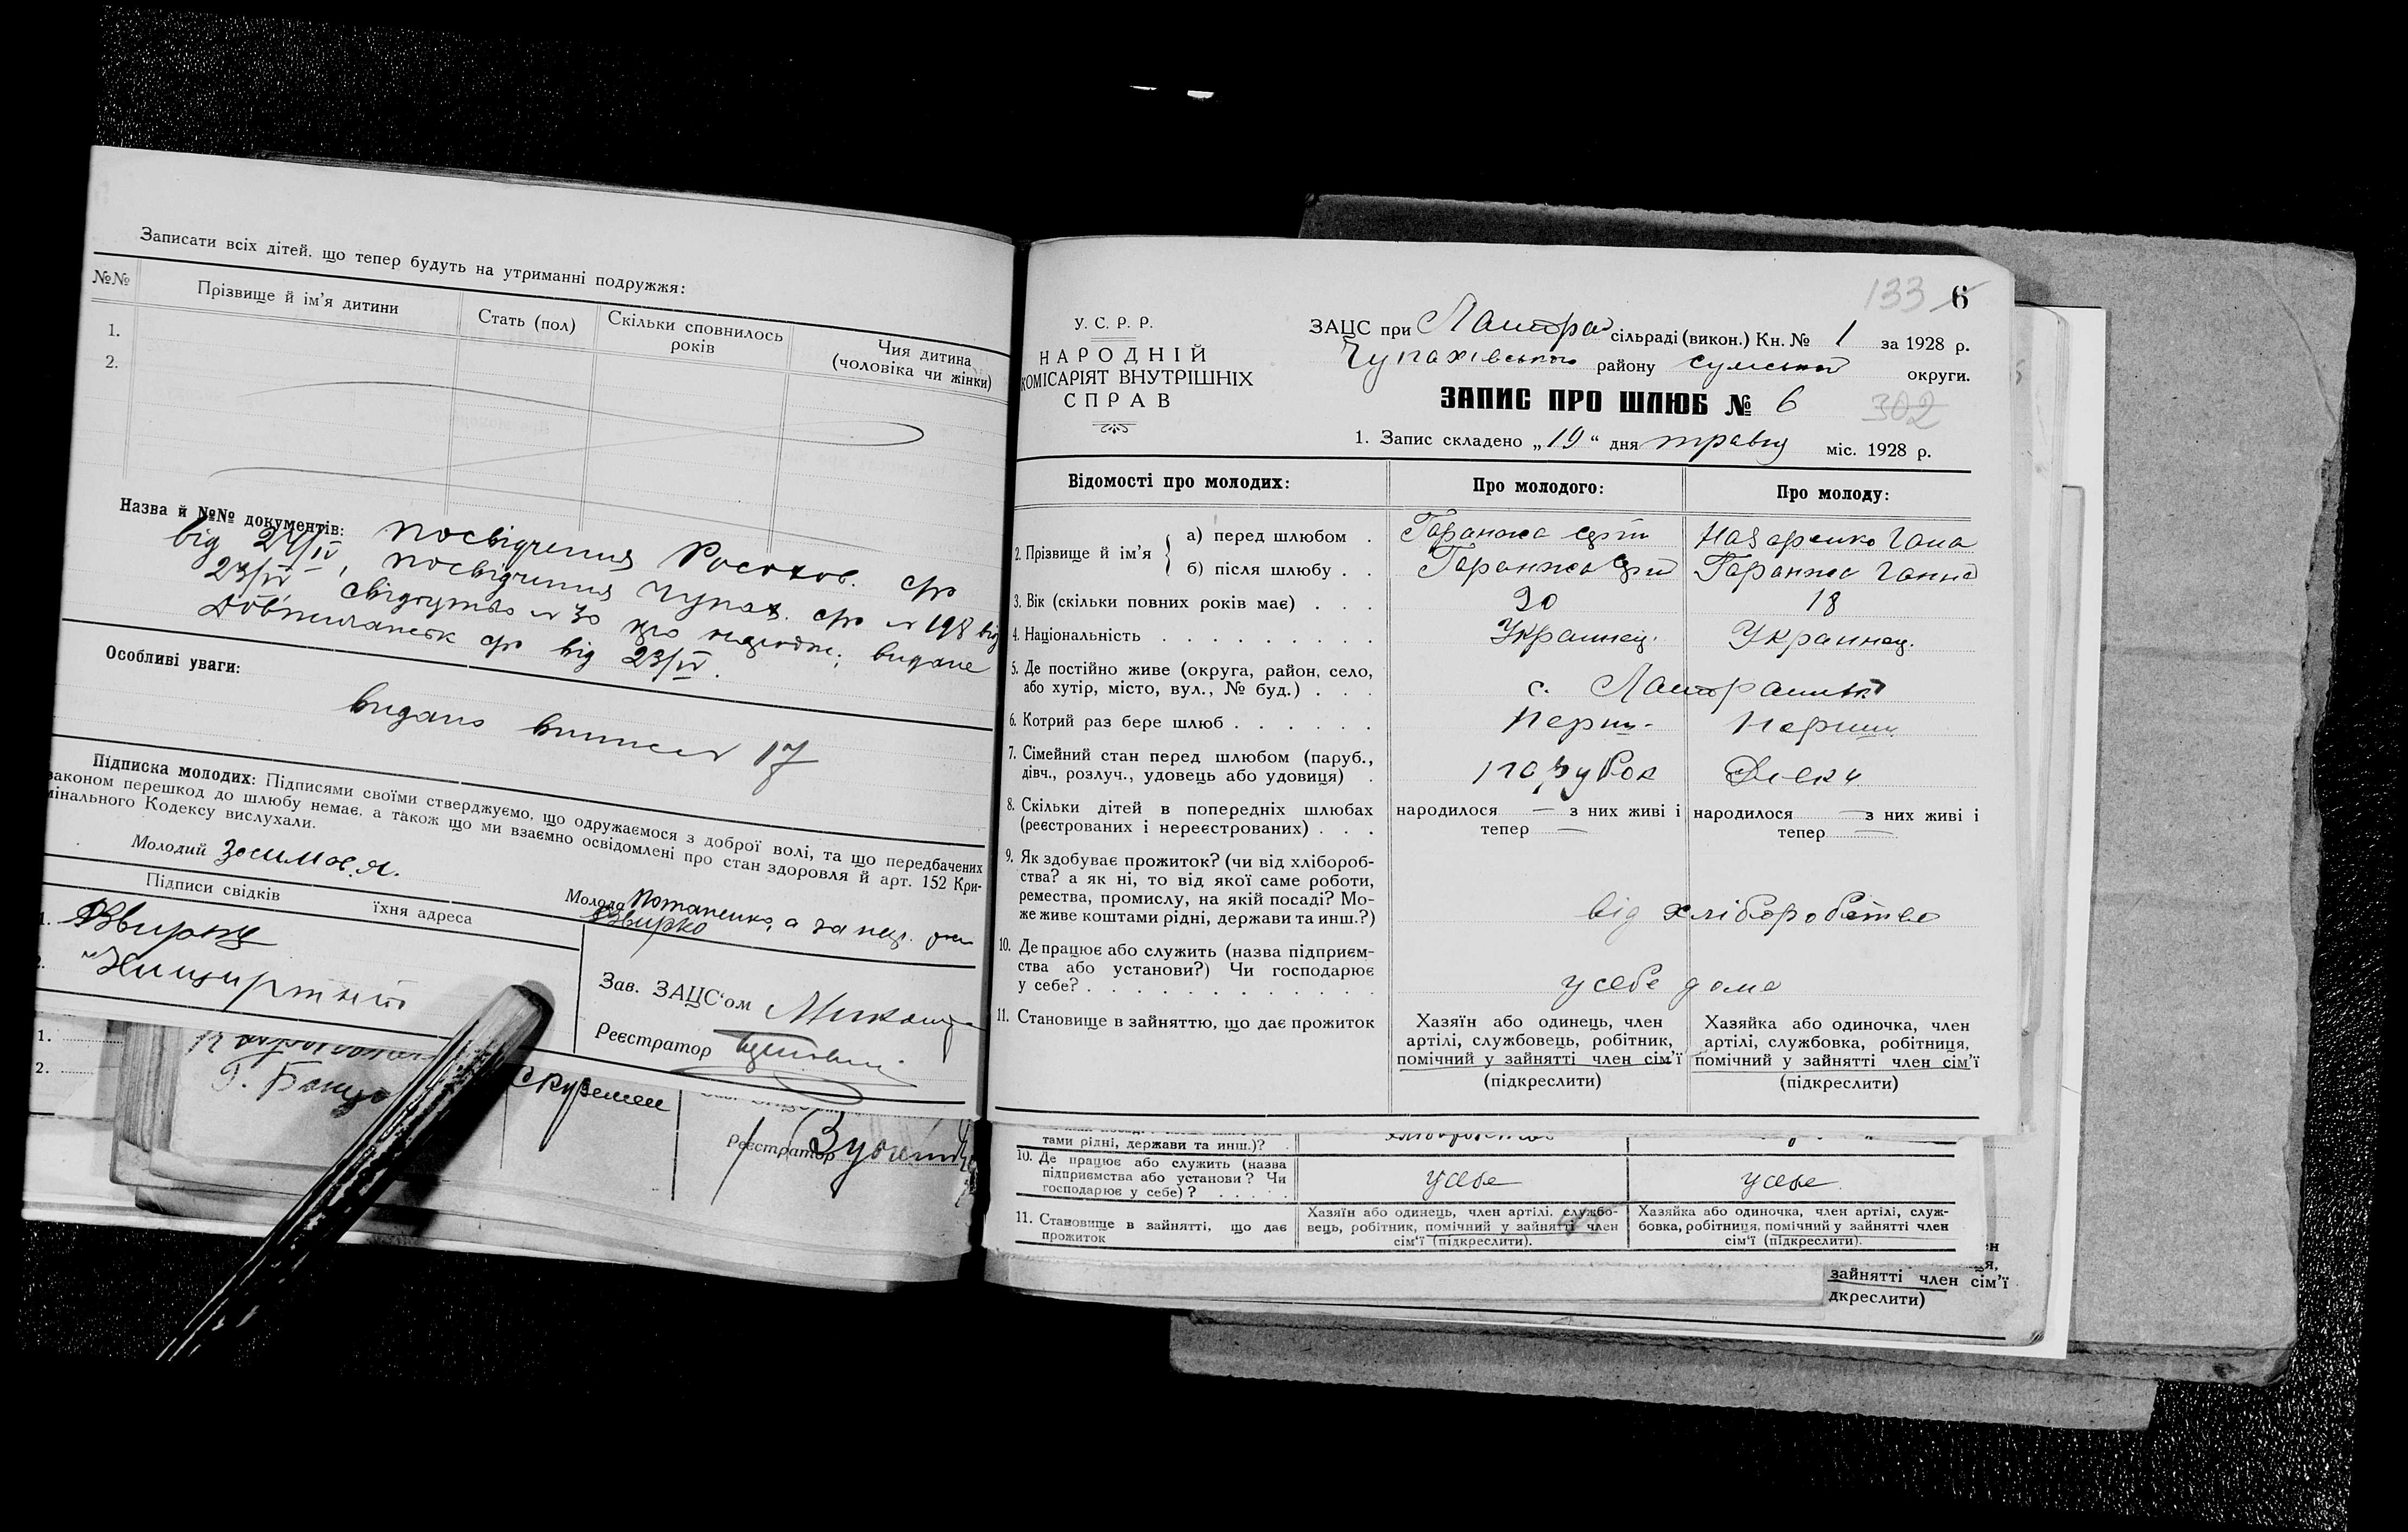 Записати всіх дітей, що тепер будуть на утриманні подружжя:
№№ Прізвище й ім'я дитини Стать (пол) Скільки сповнилось років Чия дитина (чоловіка чи жінки)
1.
2.
Назва й №№ документів: посвідчення Росохов. с/р
від 24/IV, посвідчення Чупах. с/р № 198 від
23/IV свідоцтво № 30 про видане
с/р від 23/IV.
Особливі уваги:
видано 17
Підписка молодих: Підписями своїми стверджуємо, що одружаємося з доброї волі, та що передбачених
законом перешкод до шлюбу немає, а також що ми взаємно освідомлені про стан здоровля й арт. 152 Кри-
мінального Кодексу вислухали.
Молодий
Молода Потапенко, а за
Звирко
Підписи свідків їхня адреса
1.
2.
Зав. ЗАЦС'ом
Реєстратор
1.
2.
Г.
Реєстратор
133 6
У. С. Р. Р.
НАРОДНІЙ
КОМІСАРІЯТ ВНУТРІШНІХ
СПРАВ
ЗАЦС при сільраді (викон.) Кн. № 1 за 1928 р.
Чупахівського району сумської округи.
ЗАПИС ПРО ШЛЮБ № 6
302
1. Запис складено „19“ дня травня міс. 1928 р.
Відомості про молодих: Про молодого: Про молоду:
2. Прізвище й ім'я { а) перед шлюбом . Гаранжа Назаренко Гана
б) після шлюбу . . Гаранжа Гаранжа Ганна
3. Вік (скільки повних років має) . . . 20 18
4. Національність . . . . . . . . . Украинец. Украинец.
5. Де постійно живе (округа, район, село,
або хутір, місто, вул., № буд.) . . . с.
6. Котрий раз бере шлюб . . . . . . Перш. Перши
7. Сімейний стан перед шлюбом (паруб.,
дівч., розлуч., удовець або удовиця) . парубок
8. Скільки дітей в попередніх шлюбах
(реєстрованих і нереєстрованих) . . .
народилося — з них живі і
тепер —
народилося — з них живі і
тепер —
9. Як здобуває прожиток? (чи від хлібороб-
ства? а як ні, то від якої саме роботи,
ремества, промислу, на якій посаді? Мо-
же живе коштами рідні, держави та инш.?)
від хліборобства
10. Де працює або служить (назва підприєм-
ства або установи?) Чи господарює
у себе? . . . . . . . . . . . . у себе дома
11. Становище в зайняттю, що дає прожиток
Хазяїн або одинець, член
артілі, службовець, робітник,
помічний у зайнятті член сім'ї
(підкреслити)
Хазяйка або одиночка, член
артілі, службовка, робітниця,
помічний у зайнятті член сім'ї
(підкреслити)
тами рідні, держави та инш.)?
10. Де працює або служить (назва
підприємства або установи? Чи
господарює у себе)? . . . . . у себе у себе
11. Становище в зайнятті, що дає
прожиток
Хазяїн або одинець, член артілі, службо-
вець, робітник, помічний у зайнятті член
сім'ї (підкреслити).
Хазяйка або одиночка, член артілі, служ-
бовка, робітниця, помічний у зайнятті член
сім'ї (підкреслити).
зайнятті член сім'ї
дкреслити)